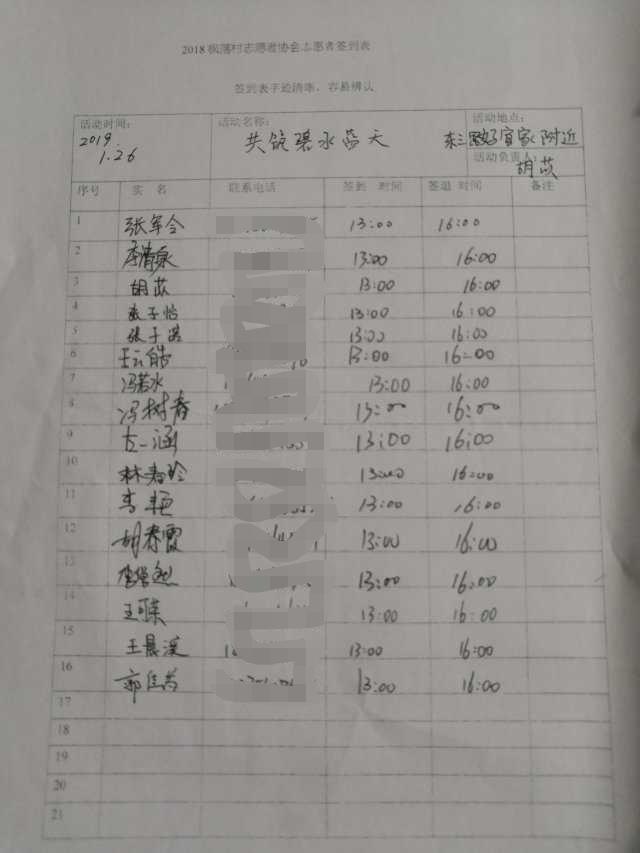 2018枫落村志愿者协会志愿者签到表
签到表字迹清晰，容易辨认
活动时间：
2019.
1.26
活动名称：
共筑碧水蓝天
活动地点：
东三路好宜家附近
活动负责人：
胡苡
序号 实 名 联系电话 签到 时间 签退 时间 备注
1 张军令 13:00 16:00
2 13:00 16:00
3 胡苡 13:00 16:00
4 张子怡 13:00 16:00
5 张子诺 13:00 16:00
6 王云皓 13:00 16:00
7 冯若水 13:00 16:00
8 冯树春 13:00 16:00
9 左一涵 13:00 16:00
10 林春玲 13:00 16:00
11 李艳 13:00 16:00
12 胡春霞 13:00 16:00
13 13:00 16:00
14 13:00 16:00
15 王晨溪 13:00 16:00
16 郭佳 13:00 16:00
17
18
19
20
21